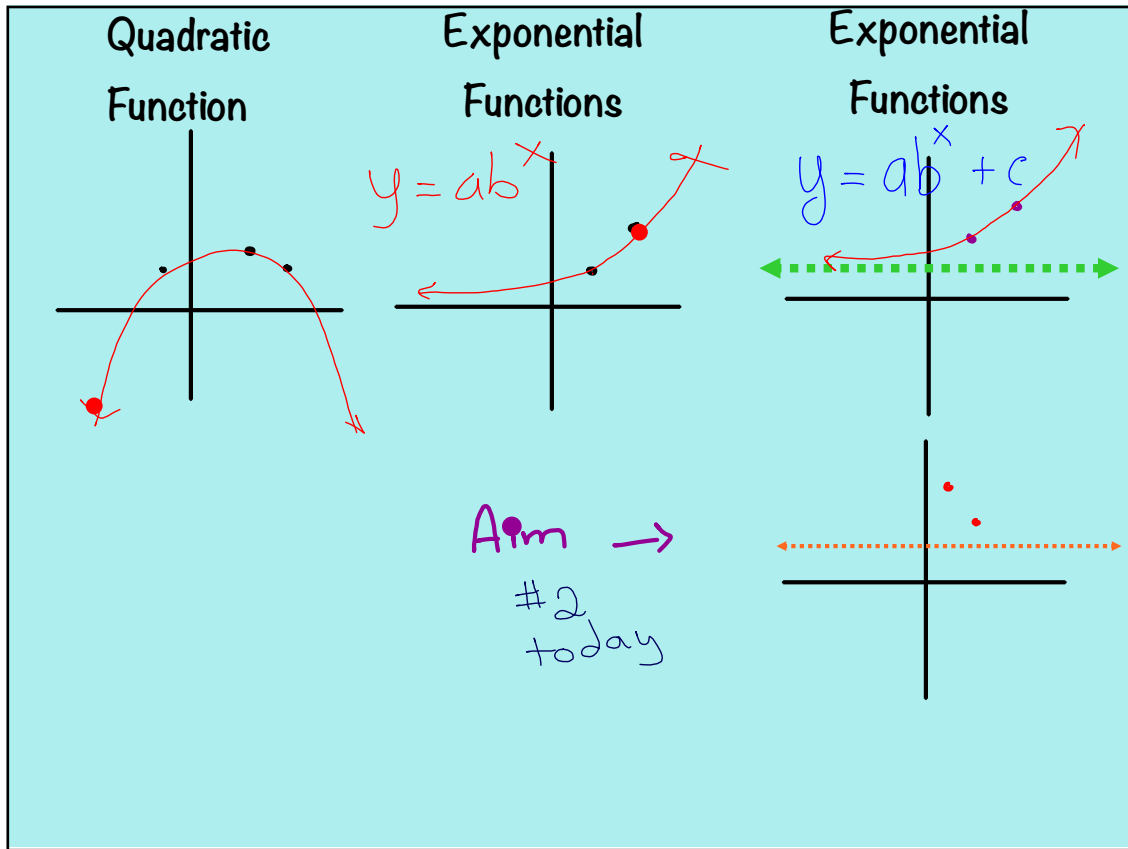 Quadratic
Function
Exponential
Functions
y = ab^x
Exponential
Functions
y = ab^x + c
Aim →
#2
today